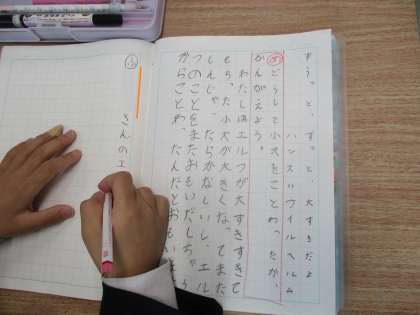 ずうっと、ずっと、大すきだよ
ハンスウイルヘルム
め どうして子犬をことわったか、
かんがえよう。
わたしはエルフが大すきすきて
もち、た小犬が大きくな、てまた
しんじゃ、たらかなしいし、エル
つのことをまたおもいだしちゃう
からことわ、たんだとおもいま
ふ
きんのエ